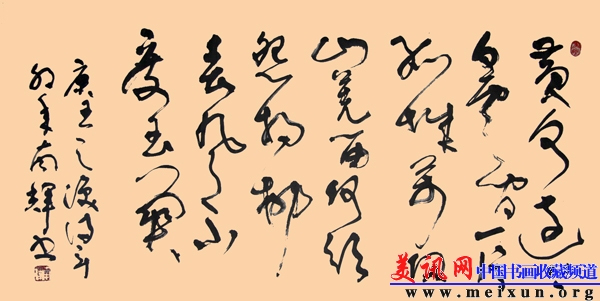 黄河远上
白云间一片
孤城万仞
山羌笛何须
怨杨柳
春风不
度玉门关
唐王之涣诗辛
卯年南辉书
美讯网 中国书画收藏频道
www.meixun.org